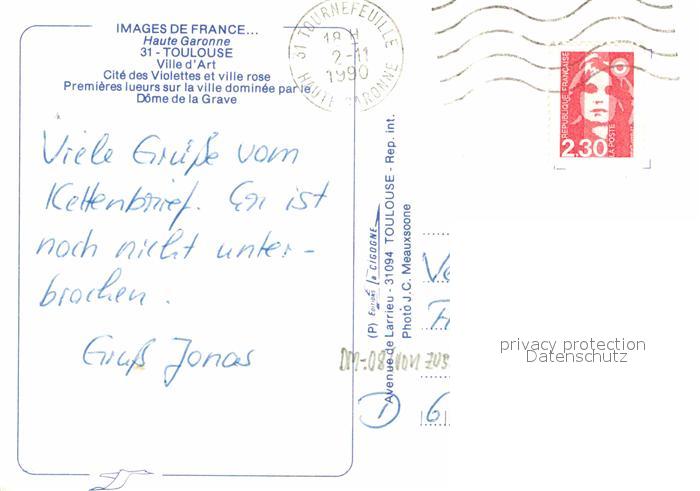 IMAGES DE FRANCE...
Haute Garonne
31 - TOULOUSE
Ville d'Art
Cité des Violettes et ville rose
Premières lueurs sur la ville dominée par le
Dôme de la Grave
Viele Grüße vom
Kettenbrief. Er ist
noch nicht unter-
brochen.
Gruß Jonas
31 TOURNEFEUILLE
18 H
2-11
1990
HAUTE GARONNE
RÉPUBLIQUE FRANÇAISE
2,30
LA POSTE
(P) Editions la CIGOGNE
Avenue de Larrieu - 31094 TOULOUSE - Rep. int.
Photo J.C. Meauxsoone
D 6
privacy protection
Datenschutz